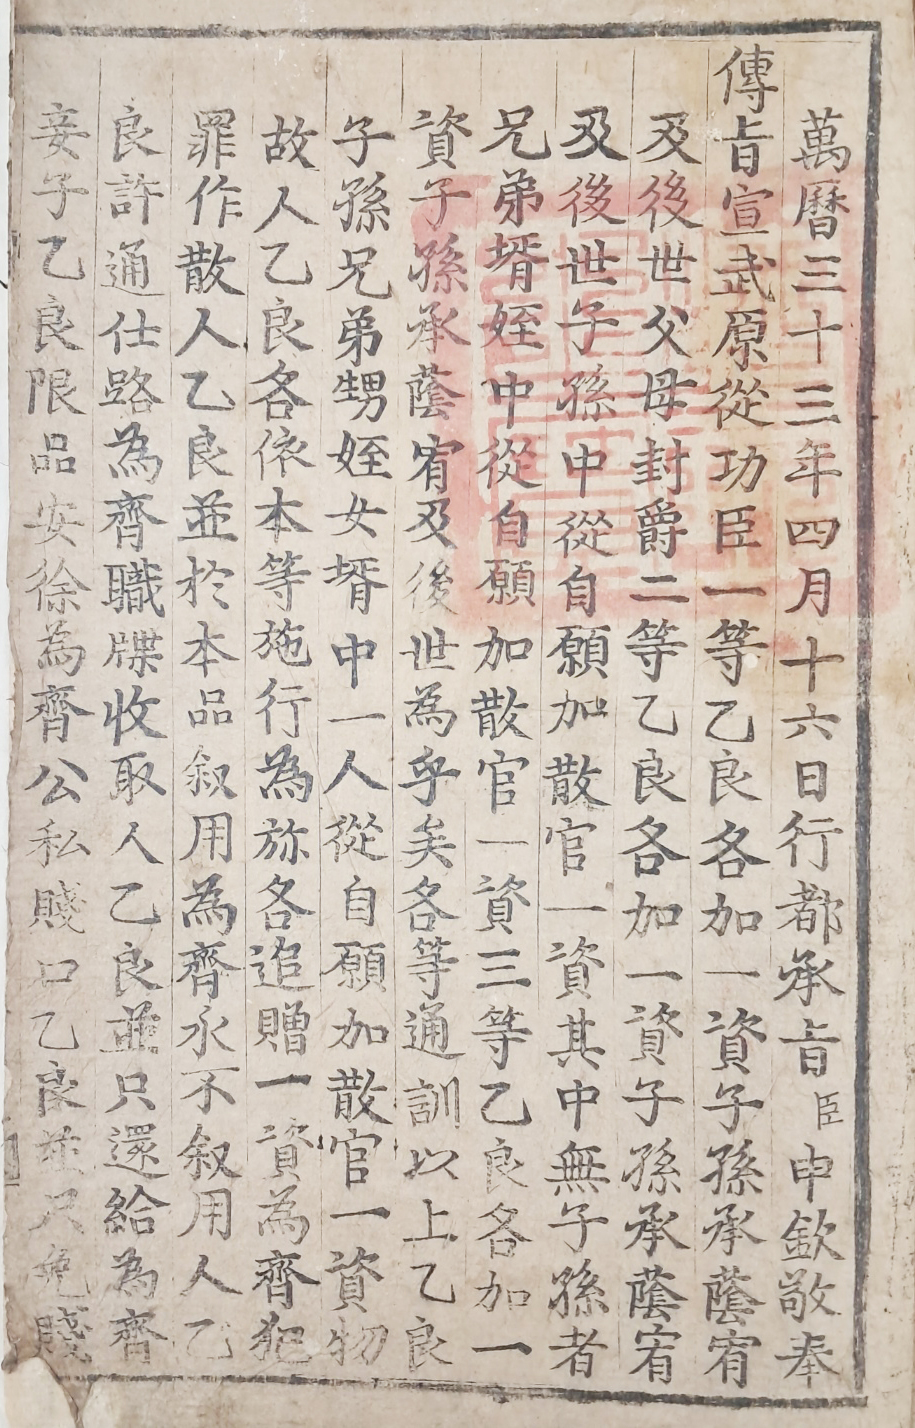 萬曆三十三年四月十六日行都承旨臣申欽敬奉
傳旨宣武原從功臣一等乙良各加一資子孫承蔭宥
及後世父母封爵二等乙良各加一資子孫承蔭宥
及後世子孫中從自願加散官一資其中無子孫者
兄弟壻姪中從自願加散官一資三等乙良各加一
資子孫承蔭宥及後世為乎矣各等通訓以上乙良
子孫兄弟甥姪女壻中一人從自願加散官一資物
故人乙良各依本等施行為旀各追贈一資為齊犯
罪作散人乙良並於本品叙用為齊永不叙用人乙
良許通仕路為齊職牒收取人乙良並只還給為齊
妾子乙良限品安徐為齊公私賤口乙良並只免賤